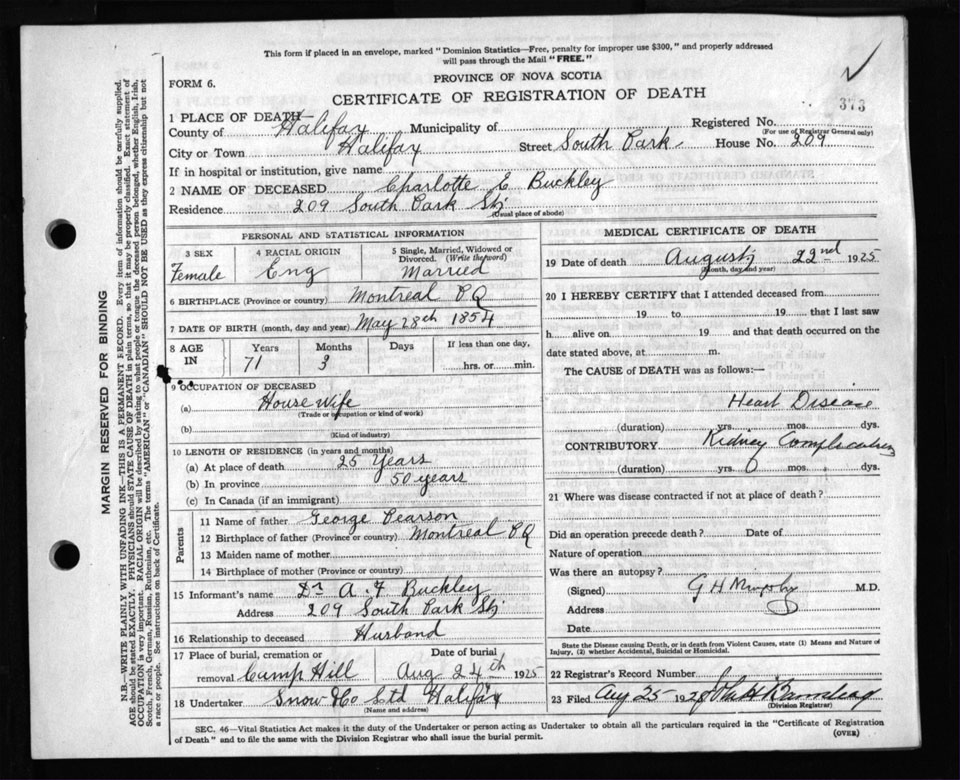 This form if placed in an envelope, marked "Dominion Statistics—Free, penalty for improper use $300," and properly addressed
will pass through the Mail "FREE."
FORM 6.
PROVINCE OF NOVA SCOTIA
CERTIFICATE OF REGISTRATION OF DEATH
373
1 PLACE OF DEATH—
County of Halifax Municipality of Registered No.
(For use of Registrar General only)
City or Town Halifax Street South Park House No. 209
If in hospital or institution, give name
2 NAME OF DECEASED Charlotte E Buckley
Residence 209 South Park St
(Usual place of abode)
PERSONAL AND STATISTICAL INFORMATION
3 SEX Female
4 RACIAL ORIGIN Eng
5 Single, Married, Widowed or Divorced. (Write the word) Married
6 BIRTHPLACE (Province or country) Montreal P Q
7 DATE OF BIRTH (month, day and year) May 28th 1854
8 AGE IN Years 71 Months 3 Days If less than one day, hrs. or min.
9 OCCUPATION OF DECEASED
(a) House Wife
(Trade or occupation or kind of work)
(b)
(Kind of industry)
10 LENGTH OF RESIDENCE (in years and months)
(a) At place of death 25 Years
(b) In province 50 years
(c) In Canada (if an immigrant)
Parents
11 Name of father George Pearson
12 Birthplace of father (Province or country) Montreal P Q
13 Maiden name of mother
14 Birthplace of mother (Province or country)
15 Informant's name Dr A. F Buckley
Address 209 South Park St
16 Relationship to deceased Husband
17 Place of burial, cremation or removal Camp Hill
Date of burial Aug 24th 1925
18 Undertaker Snow & Co Ltd Halifax
(Name and address)
MEDICAL CERTIFICATE OF DEATH
19 Date of death August 22nd 1925
(Month, day and year)
20 I HEREBY CERTIFY that I attended deceased from
19 to 19 that I last saw
h alive on 19 and that death occurred on the
date stated above, at m.
The CAUSE of DEATH was as follows:—
Heart Disease
(duration) yrs. mos. dys.
CONTRIBUTORY Kidney Complications
(duration) yrs. mos. dys.
21 Where was disease contracted if not at place of death?
Did an operation precede death? Date of
Nature of operation
Was there an autopsy?
(Signed) G H Murphy M.D.
Address
Date
State the Disease causing Death, or in death from Violent Causes, state (1) Means and Nature of
Injury, (2) whether Accidental, Suicidal or Homicidal.
22 Registrar's Record Number
23 Filed Aug 25 192
(Division Registrar)
SEC. 46—Vital Statistics Act makes it the duty of the Undertaker or person acting as Undertaker to obtain all the particulars required in the "Certificate of Registration
of Death" and to file the same with the Division Registrar who shall issue the burial permit.
(OVER)
MARGIN RESERVED FOR BINDING
N.B.—WRITE PLAINLY WITH UNFADING INK—THIS IS A PERMANENT RECORD. Every item of information should be carefully supplied.
AGE should be stated EXACTLY. PHYSICIANS should STATE CAUSE OF DEATH in plain terms, so that it may be properly classified. Exact statement of
OCCUPATION is very important. RACIAL ORIGIN will be described by stating to what people or tongue the deceased person belonged, whether English, Irish,
Scotch, French, German, Russian, Ruthenian, etc. The terms "AMERICAN" or "CANADIAN" SHOULD NOT BE USED as they express citizenship but not
a race or people. See instructions on back of Certificate.